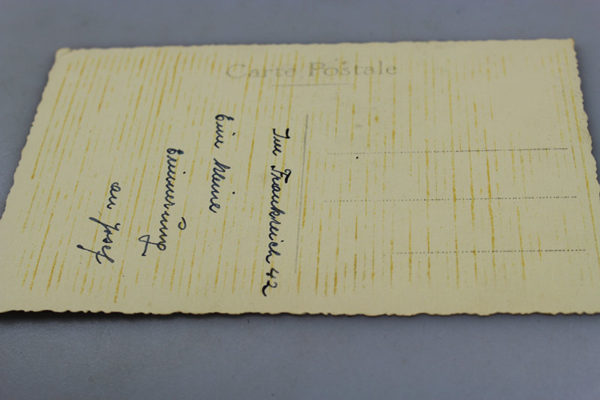 Carte Postale
Im Frankreich 42
Eine kleine
Erinnerung
an Josef